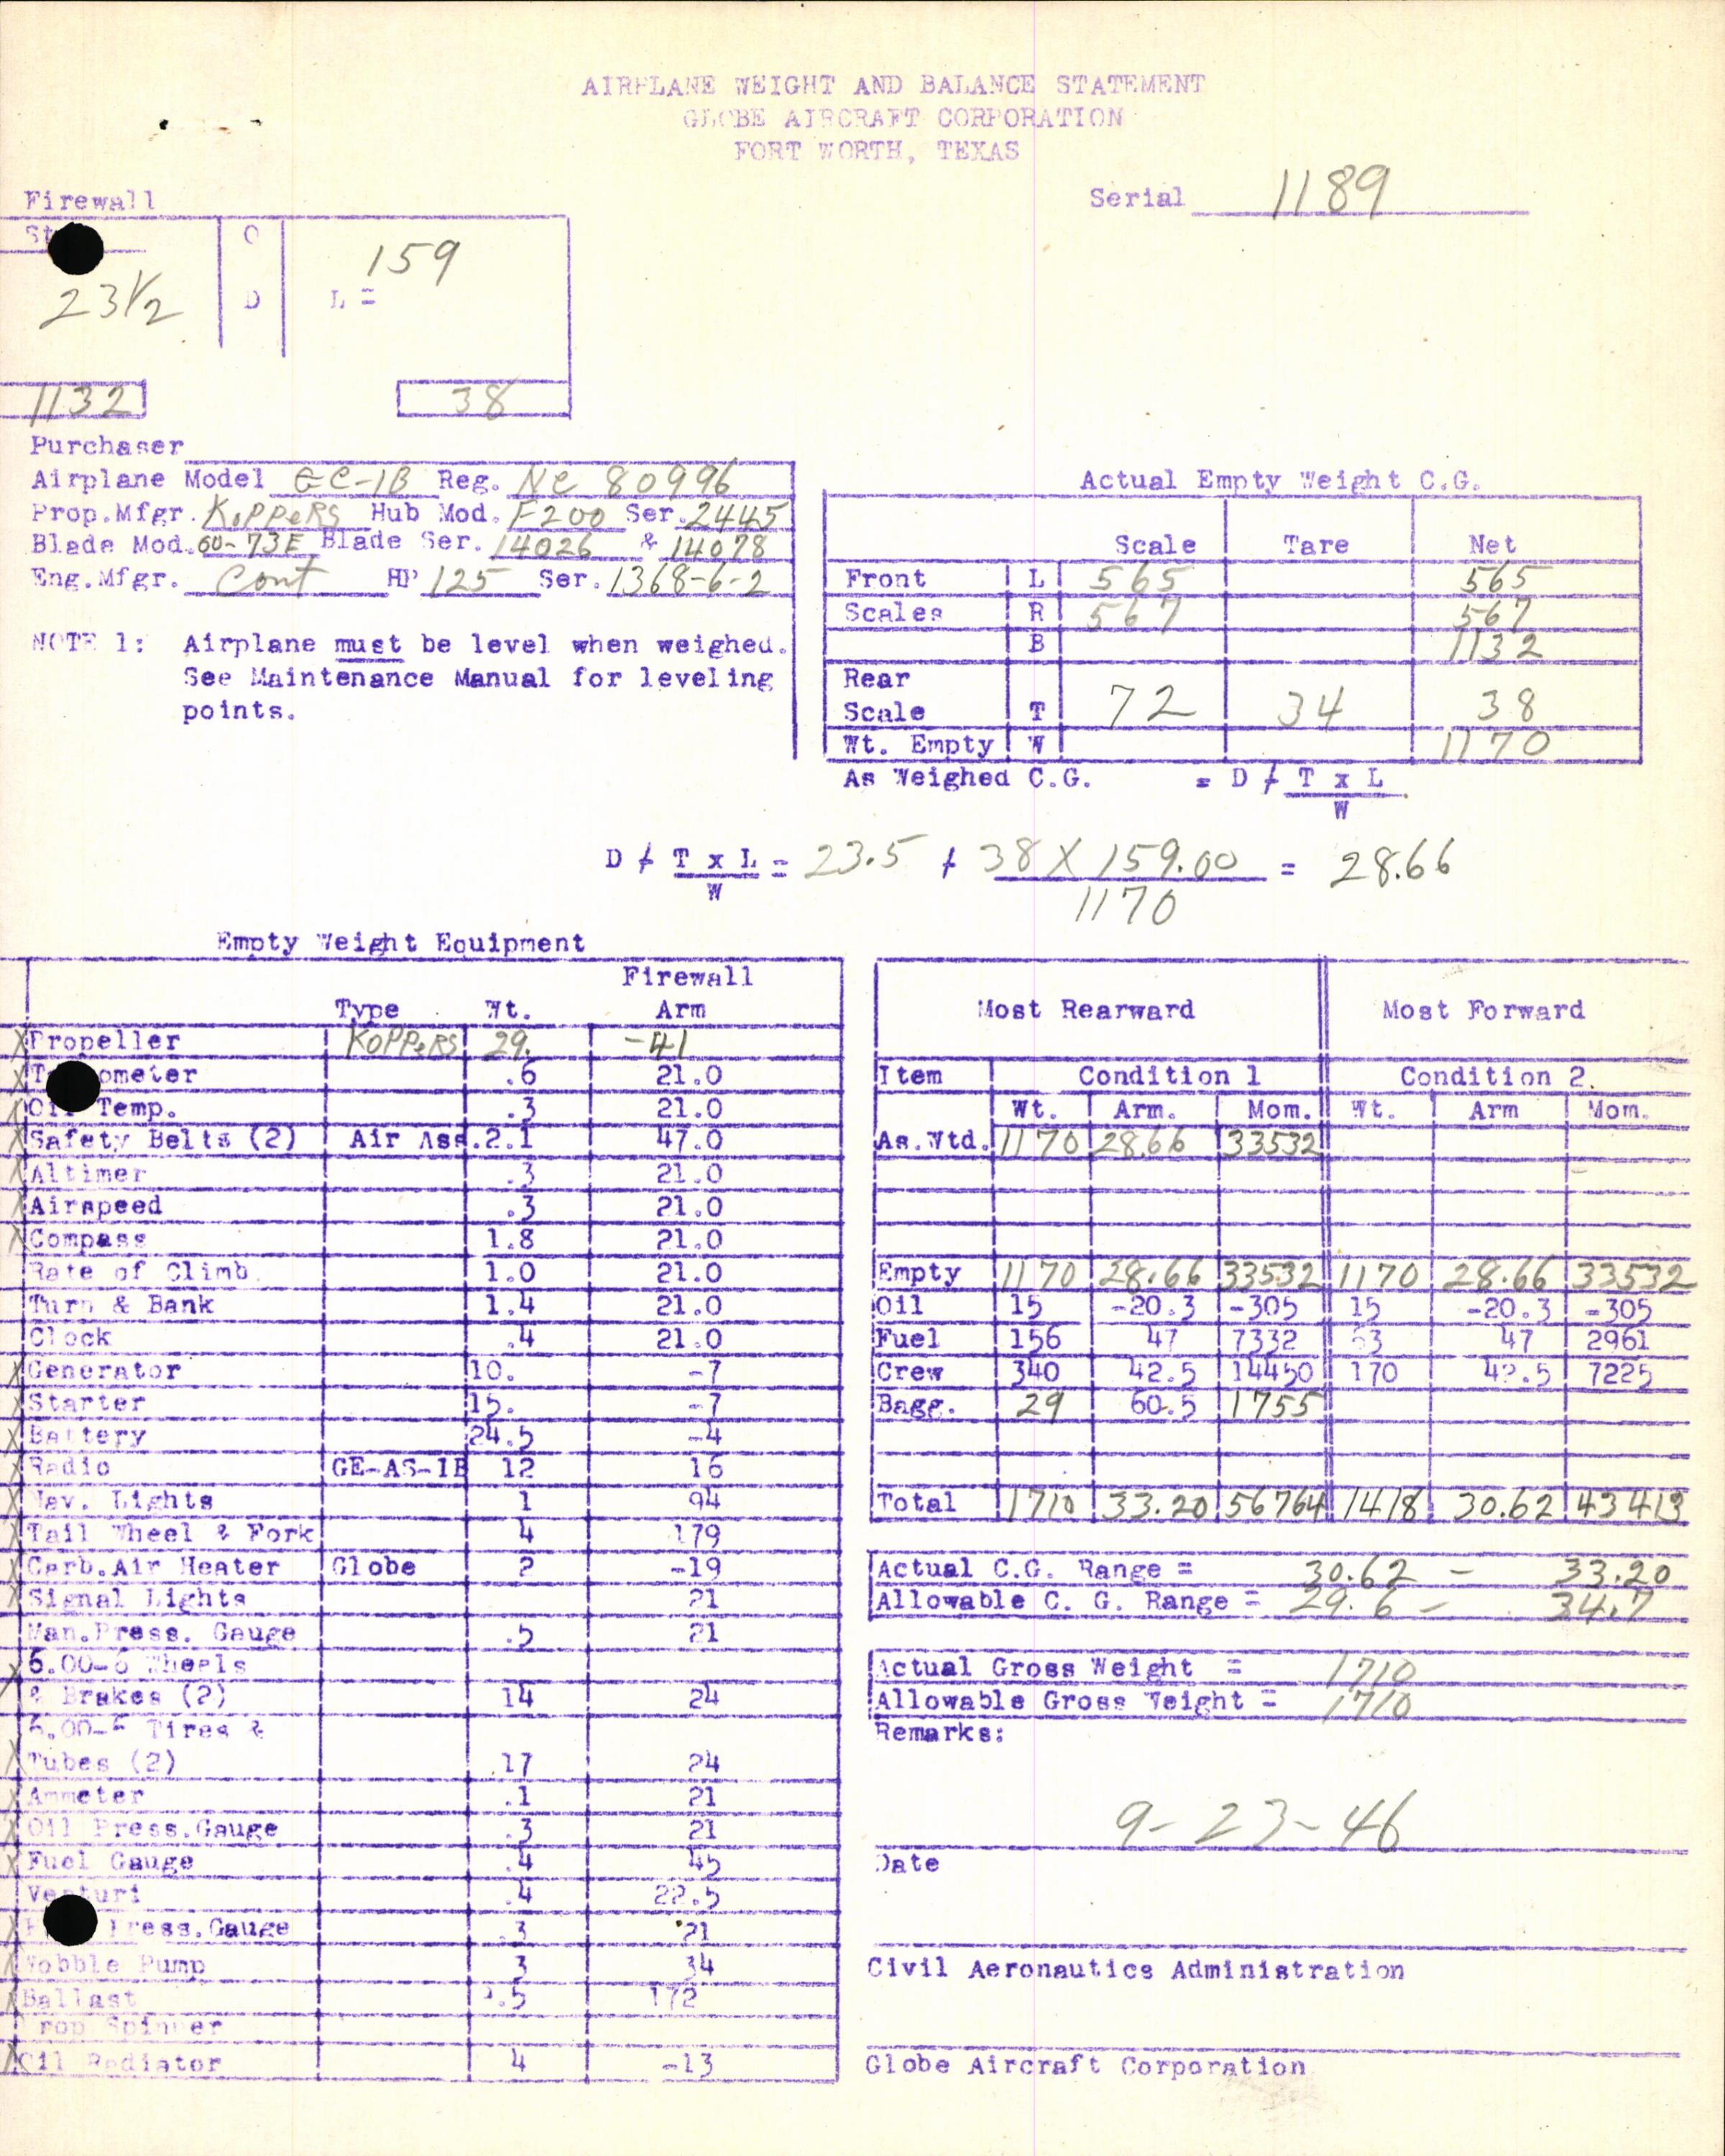 AIRPLANE WEIGHT AND BALANCE STATEMENT
GLOBE AIRCRAFT CORPORATION
FORT WORTH, TEXAS
Serial 1189
Firewall
C
159
23 1/2 D L =
1132 38
Purchaser
Airplane Model GC-1B Reg. NC 80996
Prop.Mfgr. KOPPERS Hub Mod. F200 Ser. 2445
Blade Mod. 00-73E Blade Ser. 14026 & 14078
Eng.Mfgr. Cont HP 125 Ser. 1368-6-2
NOTE 1: Airplane must be level when weighed.
See Maintenance Manual for leveling
points.
Actual Empty Weight C.G.
Scale Tare Net
Front L 565 565
Scales R 567 567
B 1132
Rear
Scale T 72 34 38
Wt. Empty W 1170
As Weighed C.G. = D / T x L
W
D / T x L = 23.5 / 38 X 159.00 = 28.66
W 1170
Empty Weight Equipment
Firewall
Type Wt. Arm
X Propeller KOPPERS 29. -41
X ometer .6 21.0
X Oil Temp. .3 21.0
X Safety Belts (2) Air Ass. 2.1 47.0
X Altimer .3 21.0
X Airspeed .3 21.0
X Compass 1.8 21.0
Rate of Climb 1.0 21.0
Turn & Bank 1.4 21.0
Clock .4 21.0
X Generator 10. -7
X Starter 15. -7
X Battery 24.5 -4
X Radio GE-AS-1B 12 16
X Nav. Lights 1 94
X Tail Wheel & Fork 4 179
X Carb.Air Heater Globe 2 -19
X Signal Lights 21
Man.Press. Gauge .5 21
X 6.00-6 Wheels
& Brakes (2) 14 24
6.00-6 Tires &
X Tubes (2) 17 24
X Ammeter .1 21
X Oil Press.Gauge .3 21
X Fuel Gauge .4 45
Venturi .4 22.5
X Press.Gauge .3 21
X Wobble Pump 3 34
X Ballast .5 172
Prop Spinner
X Oil Radiator 4 -13
Most Rearward Most Forward
Item Condition 1 Condition 2.
Wt. Arm. Mom. Wt. Arm Mom.
As.Wtd. 1170 28.66 33532
Empty 1170 28.66 33532 1170 28.66 33532
Oil 15 -20.3 -305 15 -20.3 -305
Fuel 156 47 7332 63 47 2961
Crew 340 42.5 14450 170 42.5 7225
Bagg. 29 60.5 1755
Total 1710 33.20 56764 1418 30.62 43413
Actual C.G. Range = 30.62 - 33.20
Allowable C. G. Range = 29.6 - 34.7
Actual Gross Weight = 1710
Allowable Gross Weight = 1710
Remarks:
9-23-46
Date
Civil Aeronautics Administration
Globe Aircraft Corporation